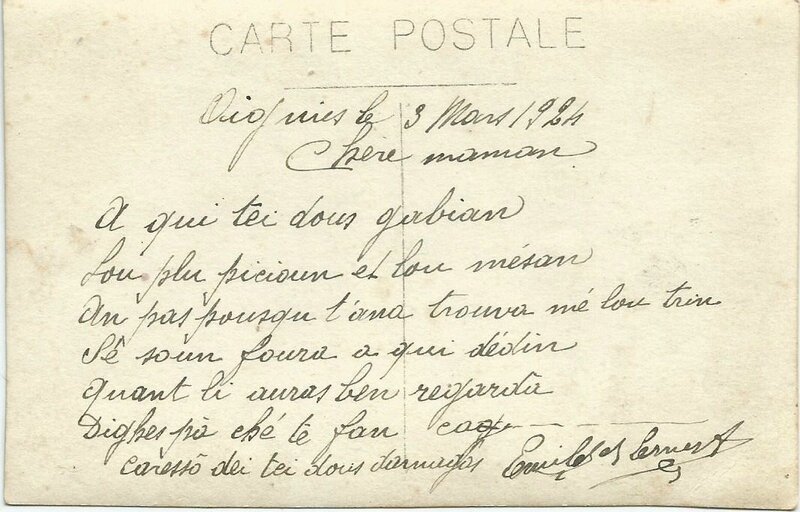 CARTE POSTALE
Oignies le 3 Mars 1924
Chère maman
A qui tei dous gabian
Lou plu picioun et lou mésan
An pas pousqu t'ana trouva mé lou trin
Sê soun foura a qui dédin
Quant li auras ben regarda
Dighes pà ché te fan cag
Caresso dei tei dous darnagas Emile et Ernest